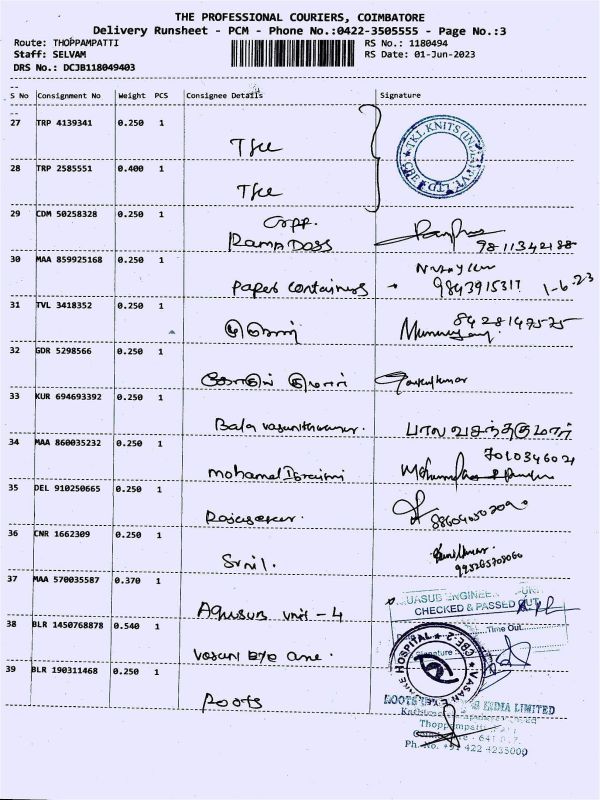 THE PROFESSIONAL COURIERS, COIMBATORE
Delivery Runsheet - PCM - Phone No.:0422-3505555 - Page No.:3
Route: THOPPAMPATTI RS No.: 1180494
Staff: SELVAM RS Date: 01-Jun-2023
DRS No.: DCJB118049403
S No Consignment No Weight PCS Consignee Details Signature
27 TRP 4139341 0.250 1
TKL KNITS (INDIA) PVT. LTD. CBE
28 TRP 2585551 0.400 1
29 CDM 50258328 0.250 1
Ramp Doss
9811342188
30 MAA 859925168 0.250 1
Paper containers 9843915311 1-6-23
31 TVL 3418352 0.250 1
8428147575
32 GDR 5298566 0.250 1
Gokulkumar
33 KUR 694693392 0.250 1
Bala vasanthakumar. பால வசந்தகுமார்
34 MAA 860035232 0.250 1
7010346021
Mohamed Ibrahim
35 DEL 910250665 0.250 1
Rajasekar.
36 CNR 1662309 0.250 1
Sunil.
37 MAA 570035587 0.370 1
Aquasub unit - 4
CHECKED & PASSED OUT
38 BLR 1450768878 0.540 1
Time Out
Signature
Vasan Eye Care.
VASAN EYE CARE HOSPITAL CBE-2
39 BLR 190311468 0.250 1
Roots
ROOTS INDIA LIMITED
Thoppampatti
Ph. No. +91 422 4235000